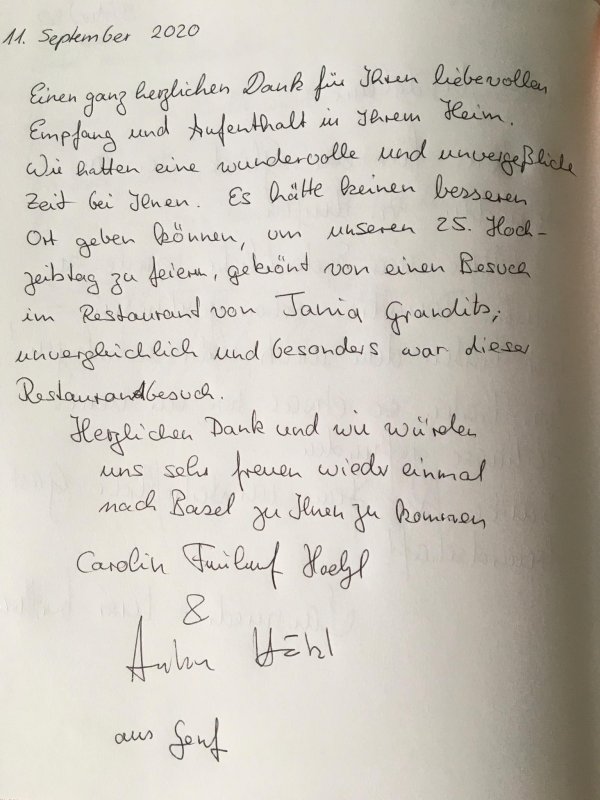 11. September 2020
Einen ganz herzlichen Dank für Ihren liebevollen
Empfang und Aufenthalt in Ihrem Heim.
Wir hatten eine wundervolle und unvergeßliche
Zeit bei Ihnen. Es hätte keinen besseren
Ort geben können, um unseren 25. Hoch-
zeitstag zu feiern, gekrönt von einen Besuch
im Restaurant von Tania Grandits,
unvergleichlich und besonders war dieser
Restaurandbesuch.
Herzlichen Dank und wir würden
uns sehr freuen wieder einmal
nach Basel zu Ihnen zu kommen
Carolin
&
aus Genf